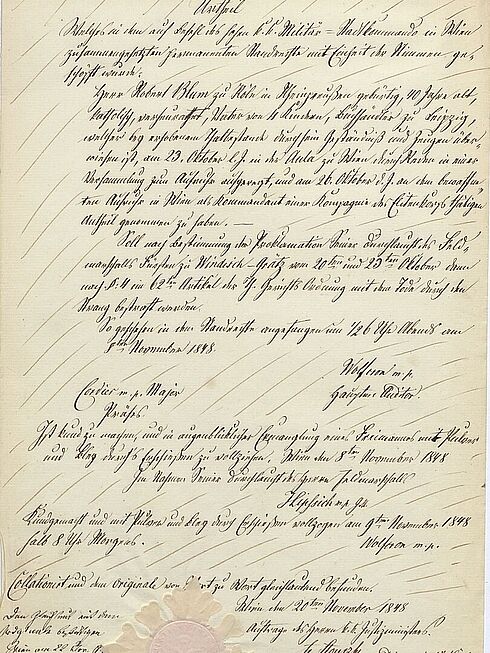 Urtheil
Welches in dem auf Befehl des hohen k. k. Militär-Stadtkommando in Wien
zusammengesetzten permanenten Standrechte mit Einheit der Stimmen ge-
schöpft wurde:
Herr Robert Blum zu Köln in Rheinpreußen gebürtig, 40 Jahre alt,
katholisch, verheurathet, Vater von 4 Kindern, Buchhändler zu Leipzig,
welcher bey erhobenem Thatbestande durch sein Geständniß und Zeugen über-
wiesen ist, am 23. Oktober l. J. in der Aula zu Wien durch Reden in einer
Versammlung zum Aufruhr aufgeregt, und am 26. Oktober d. J. an dem bewaffne-
ten Aufruhr in Wien als Kommandant einer Kompagnie des Elitenkorps thätigen
Antheil genommen zu haben. —
Soll nach Bestimmung der Proklamation Seiner Durchlaucht des Feld-
marschalls Fürsten zu Windisch-Grätz vom 20ten und 23ten Oktober dann
nach §: 4 im 62ten Artikel der Th. Gerichts Ordnung mit dem Tode durch den
Strang bestraft werden.
So geschehen in dem Standrechte angefangen um ½6 Uhr Abends am
8ten November 1848.
Wolferom m. p.
Cordier m. p. Major
Hauptm: Auditor.
Präses
Ist kund zu machen, und in augenblicklicher Ermanglung eines Freimannes mit Pulver
und Bley durch's Erschießen zu vollziehen. Wien den 8ten November 1848
Im Namen Seiner Durchlaucht des Herrn Feldmarschalls
Hipssich m. p. Gm.
Kundgemacht und mit Pulver und Bley durch Erschießen vollzogen am 9ten November 1848
halb 8 Uhr Morgens.
Wolferom m. p.
Collationirt und dem Originale von Wort zu Wort gleichlautend befunden.
Wien den 20ten November 1848
Im Auftrage des Herrn k. k. Justizministers.
Den Gleichlaut mit dem